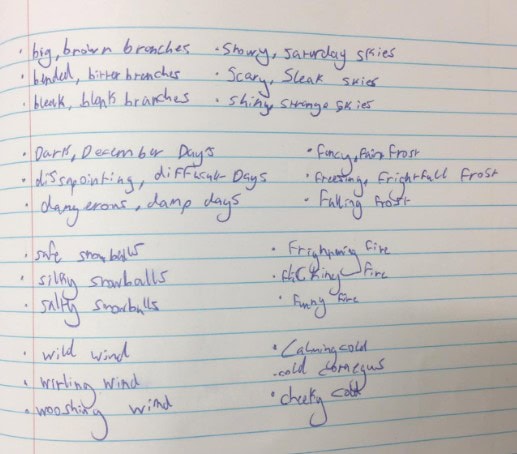 · big, brown branches
· bended, bitter branches
· bleak, blank branches
· Dark, December Days
· dissapointing, difficult Days
· dangerous, damp days
· safe snowballs
· silky snowballs
· salty snowballs
· wild wind
· wirling wind
· wooshing wind
· Snowy, saturday skies
· Scary, Sleak skies
· shiny strange skies
· Fancy, Fair Frost
· Freezing, Frightfull Frost
· Falling Frost
· Frightning Fire
· Flicking Fire
· Funny Fire
· Calming cold
· cold
· cheeky cold